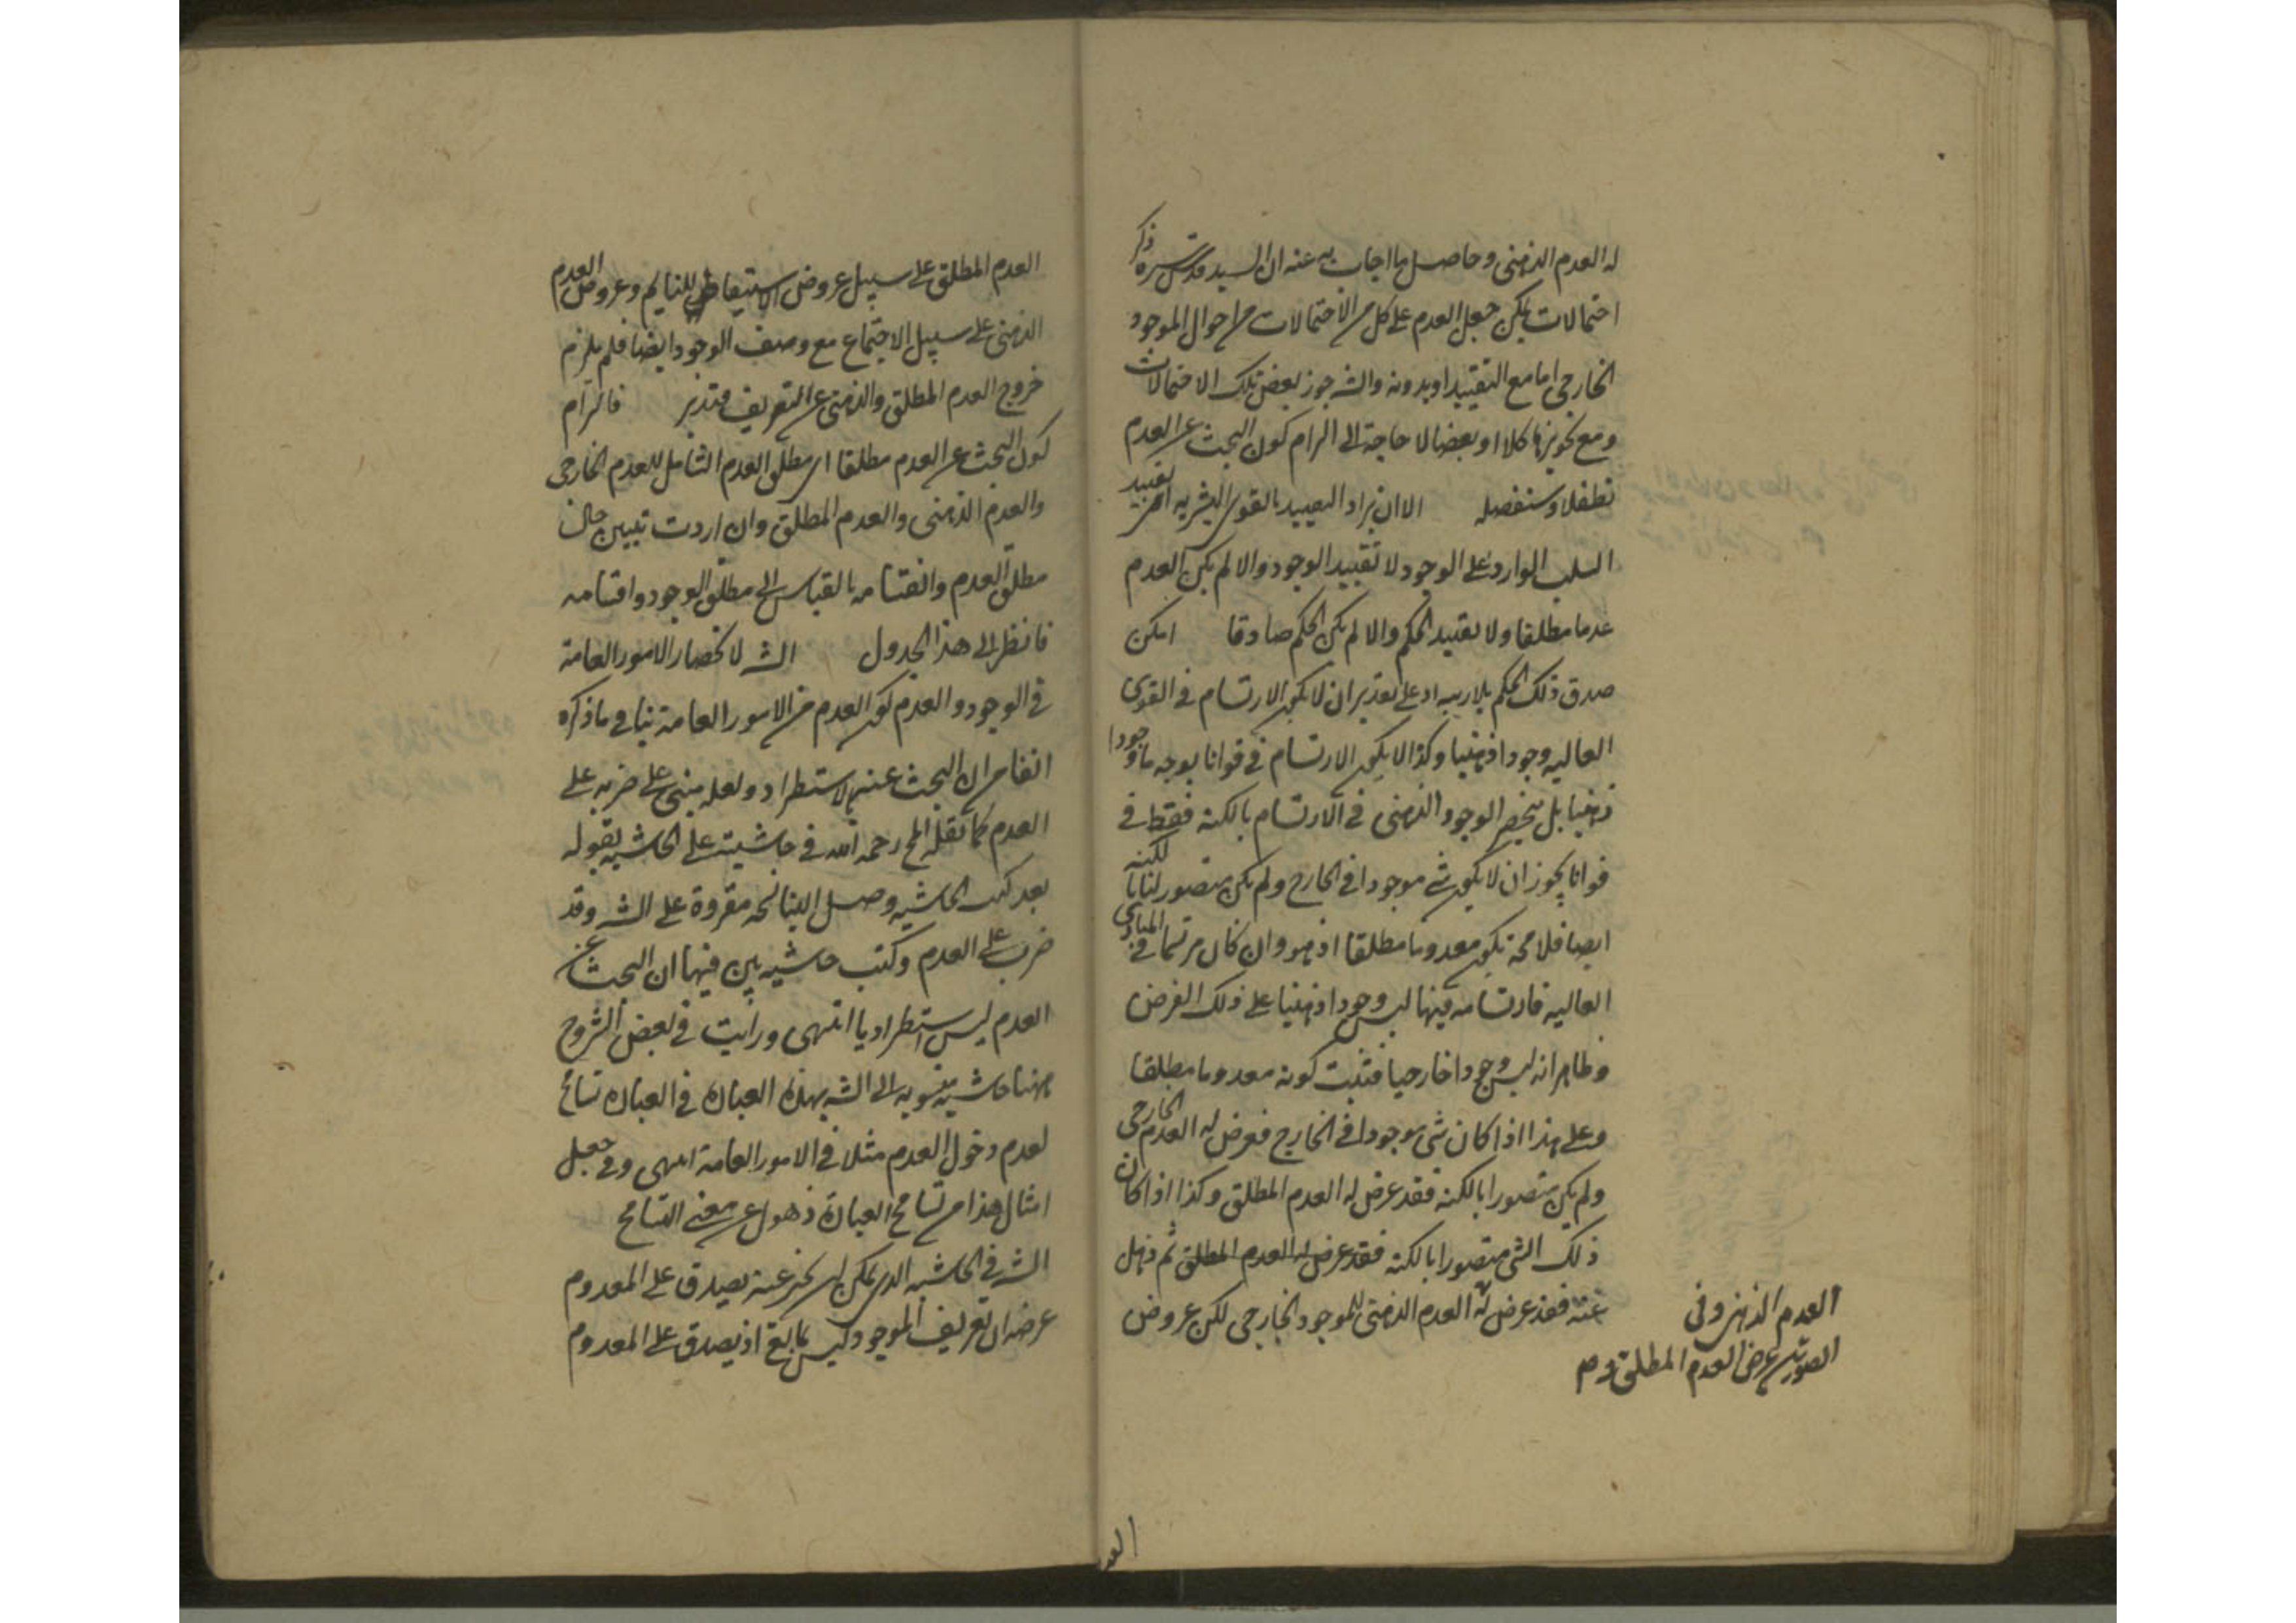 له العدم الذهنى وحاصل ما اجاب به عنه ان السيد قدس سره ذكر
احتمالات يمكن جعل العدم على كل من الاحتمالات من احوال الموجود
الخارجى اما مع التقييد او بدونه والشه جوز بعض تلك الاحتمالات
ومع تجويزها كلا او بعضا لا حاجة الى الزام كون البحث عن العدم
تطفلا وسنفصله الا ان يراد التقييد بالقوى البشرية تقييد
السلب الوارد على الوجود لا تقييد الوجود والا لم يكن العدم
عدما مطلقا ولا تقييد الحكم والا لم يكن الحكم صادقا امكن
صدق ذلك الحكم بلا ريبه اد على تقدير ان لا يكون الارتسام فى القوى
العاليه وجودا ذهنيا وكذا لا يكون الارتسام فى قوانا بوجه ما وجودا
ذهنيا بل ينحصر الوجود الذهنى فى الارتسام بالكنه فقط فى
قوانا يجوز ان لا يكون شى موجودا فى الخارج ولم يكن متصورا لنا بالكنه
ايضا فلا محة يكون معدوما مطلقا اذ هو وان كان مرتسما فى المبادى
العاليه فارتسامه فيها ليس وجودا ذهنيا على ذلك الفرض
وظاهر انه ليس وجودا خارجيا فثبت كونه معدوما مطلقا
وعلى هذا اذا كان شى موجودا فى الخارج فعرض له العدم الخارجى
ولم يكن متصورا بالكنه فقد عرض له العدم المطلق وكذا اذا كان
ذلك الشى متصورا بالكنه فقد عرض له العدم المطلق ثم ذهل
عنه فقد عرض له العدم الذهنى للموجود الخارجى لكن عروض
العدم الذهنى وفى
الصورتين عرض العدم المطلق
العد
العدم المطلق على سبيل عروض الاستيقاظ للنايم وعروض العدم
الذهنى على سبيل الاجتماع مع وصف الوجود ايضا فلم يلزم
خروج العدم المطلق والذهنى عن التعريف فتدبر فالزام
كون البحث عن العدم مطلقا اى مطلق العدم الشامل للعدم الخارجى
والعدم الذهنى والعدم المطلق وان اردت تبيين حال
مطلق العدم واقسامه بالقياس الى مطلق الوجود واقسامه
فانظر الى هذا الجدول الشه لانحصار الامور العامة
فى الوجود والعدم كون العدم من الامور العامة ينافى ما ذكره
انفا من ان البحث عنه بالاستطراد ولعله مبنى على ضربه على
العدم كما نقله المح رحمه الله فى حاشيته على الحاشيه بقوله
بعد كتب الحاشيه وصل الينا نسخه مقروة على الشه وقد
ضرب على العدم وكتب حاشيه بين فيها ان البحث عن
العدم ليس استطراديا انتهى ورايت فى بعض الشروح
ههنا حاشيه منسوبه الى الشه بهذه العباره فى العباره تسامح
لعدم دخول العدم مثلا فى الامور العامة انتهى وفى جعل
امثال هذا من تسامح العبارة ذهول عن معنى التسامح
الشه فى الحاشيه الذى يمكن ان يخبر عنه يصدق على المعدوم
غرضه ان تعريف الموجود ليس بمانع اذ يصدق على المعدوم